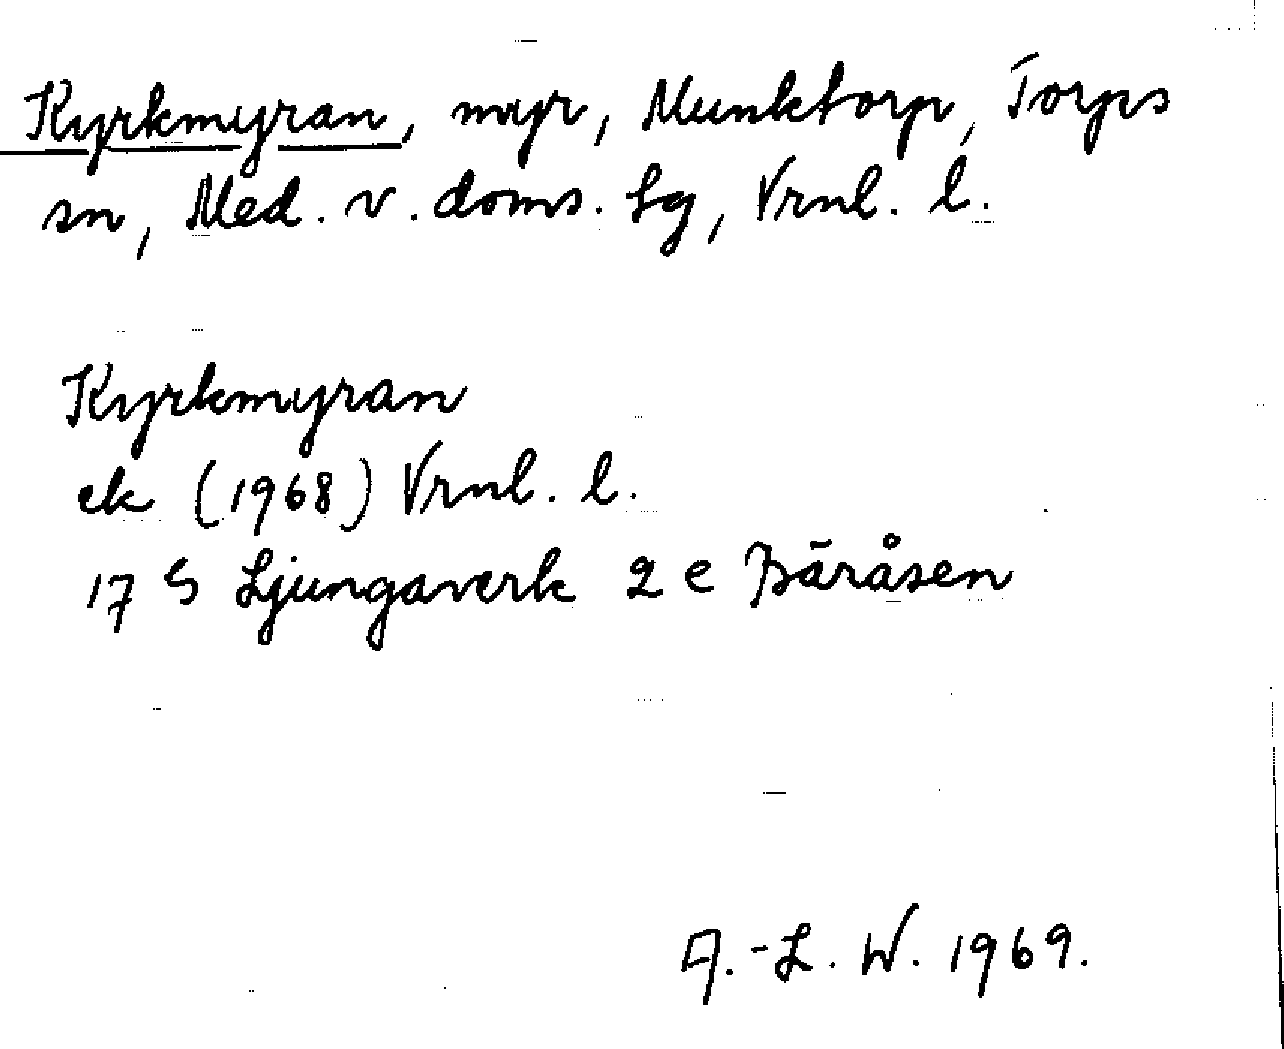 Kyrkmyran, myr, Munktorp, Torps
sn, Med. v. doms. lg, Vrnl. l.
Kyrkmyran
ek (1968) Vrnl. l.
17 S Ljungaverk 2 e Bäråsen
A.-L. W. 1969.